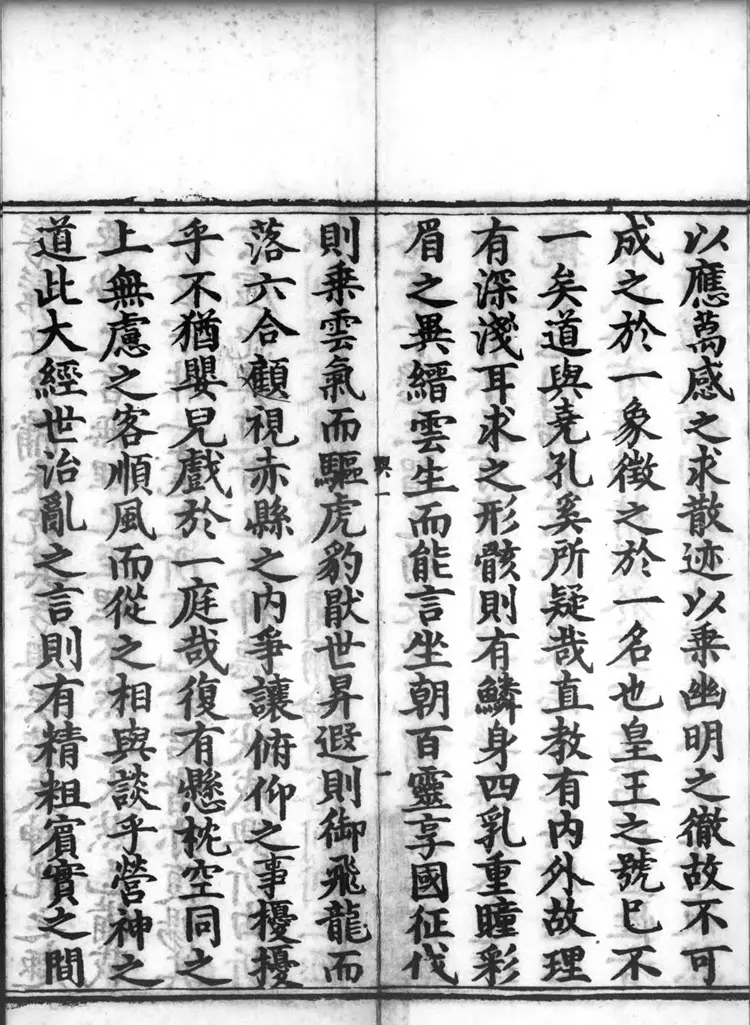 以應萬感之求散迹以乘幽明之徹故不可
成之於一象徵之於一名也皇王之號已不
一矣道與堯孔奚所疑哉直教有内外故理
有深淺耳求之形骸則有鱗身四乳重瞳彩
眉之異縉雲生而能言坐朝百靈享國征伐
則乗雲氣而驅虎豹猒世昇遐則御飛龍而
落六合顧視赤縣之内爭讓俯仰之事擾擾
乎不猶嬰兒戲於一庭哉復有懸枕空同之
上無慮之客順風而從之相與談乎營神之
道此大經世治亂之言則有精粗賔實之間